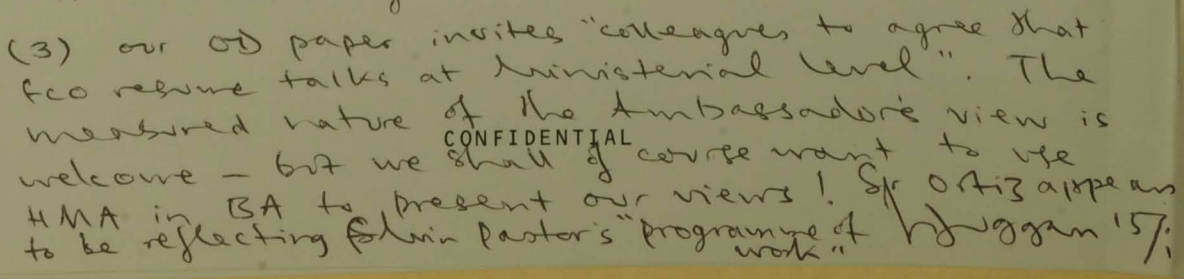 (3) our OD paper invites "colleagues to agree that
FCO resume talks at Ministerial level". The
measured nature of the Ambassador's view is
CONFIDENTIAL
welcome – but we shall of course want to use
HMA in BA to present our views! Sr Ortiz appears
to be reflecting Pastor's "programme of work"
15/